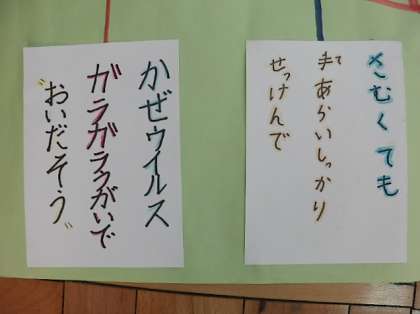 さむくても
手あらいしっかり
て
せっけんで
かぜウイルス
ガラガラうがいで
おいだそう